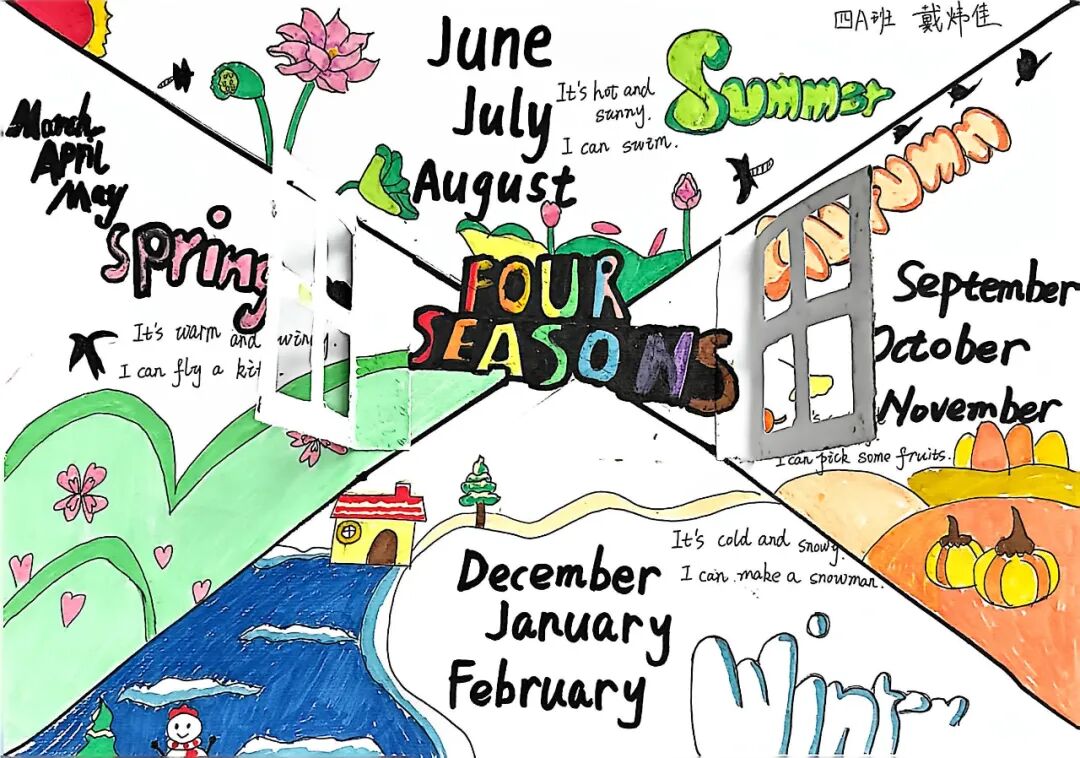 四A班 戴炜佳
June
July
August
It's hot and
sunny.
I can swim.
Summer
March
April
May
Spring
It's warm and
I can fly a
FOUR
SEASONS
September
October
November
I can pick some fruits.
It's cold and snowy.
I can make a snowman.
December
January
February
Winter